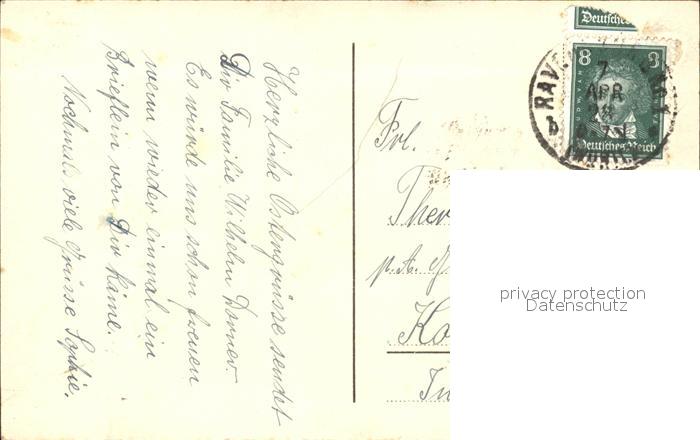 Herzliche Ostergrüsse sendet
Dir Familie Wilhelm Dorner.
Es würde uns schon freuen
wenn wieder einmal ein
Brieflein von Dir käme.
Nochmals viele Grüsse Sophie.
Frl.
Ther
p. A.
Ko
In
Deutsches
8 3
LUDW. VAN
Deutsches Reich
RAV
7
APR
b
privacy protection
Datenschutz